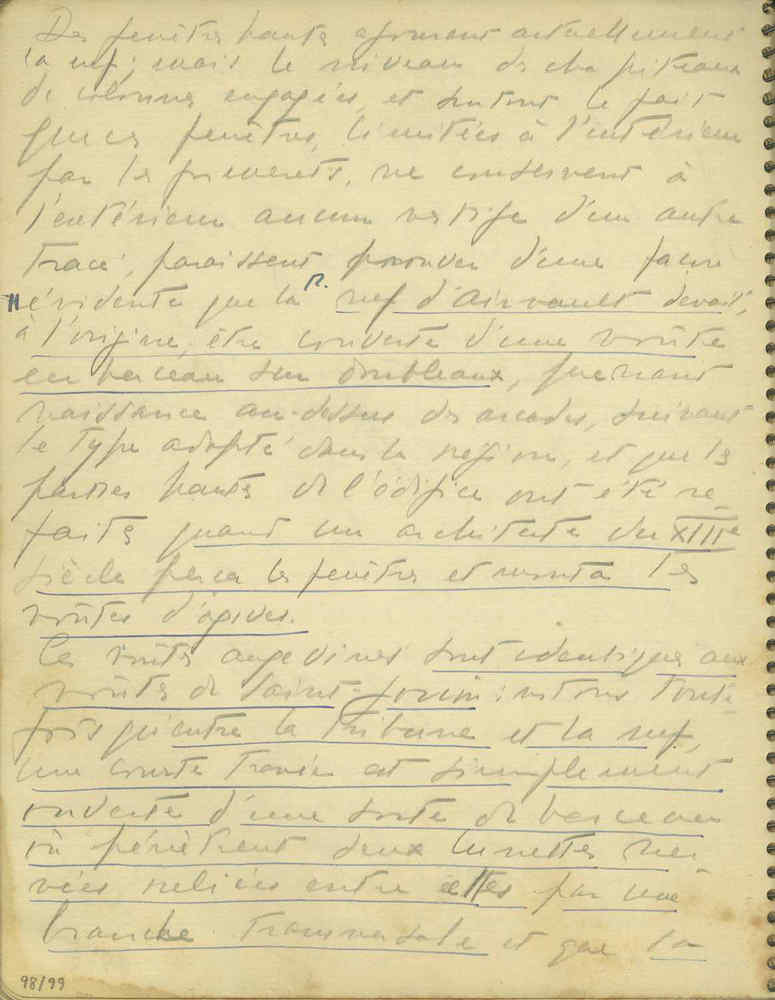 Des fenêtres hautes ajourent actuellement
la nef; mais le niveau des chapiteaux
de colonnes engagées, et surtout le fait
que ces fenêtres, limitées à l'intérieur
par les formerets, ne conservent à
l'extérieur aucun vestige d'un autre
tracé, paraissent prouver d'une façon
évidente que la nef d'Airvault devait,
à l'origine, être couverte d'une voûte
en berceau sur doubleaux, prenant
naissance au-dessus des arcades, suivant
le type adopté dans la région, et que les
parties hautes de l'édifice ont été re-
faites quand un architecte du XIIIe
siècle perça les fenêtres et monta les
voûtes d'ogives.
Ces voûtes angevines sont identiques aux
voûtes de Saint-Jouin: notons toute
fois qu'entre la tribune et la nef,
une courte travée est simplement
couverte d'une sorte de berceau
où pénètrent deux lunettes ner-
vées reliées entre elles par une
branche transversale et que la
98/99